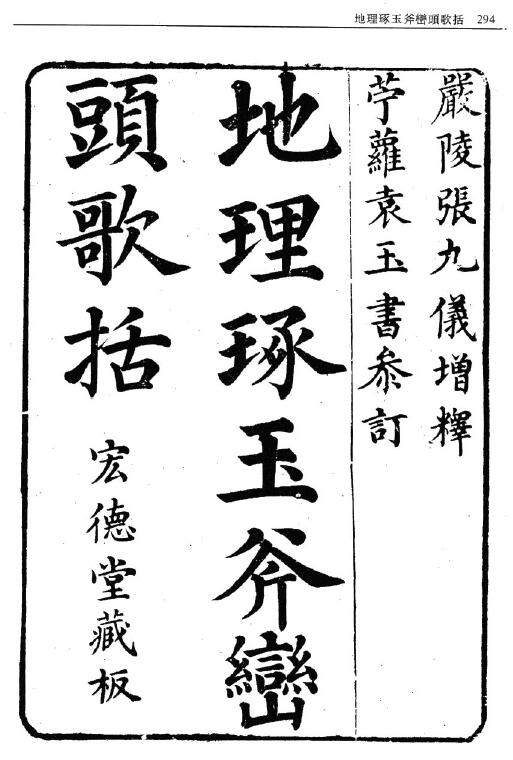 地理琢玉斧巒頭歌括 294
嚴陵張九儀增釋
苧蘿袁玉書叅訂
地理琢玉斧巒
頭歌括
宏德堂藏板